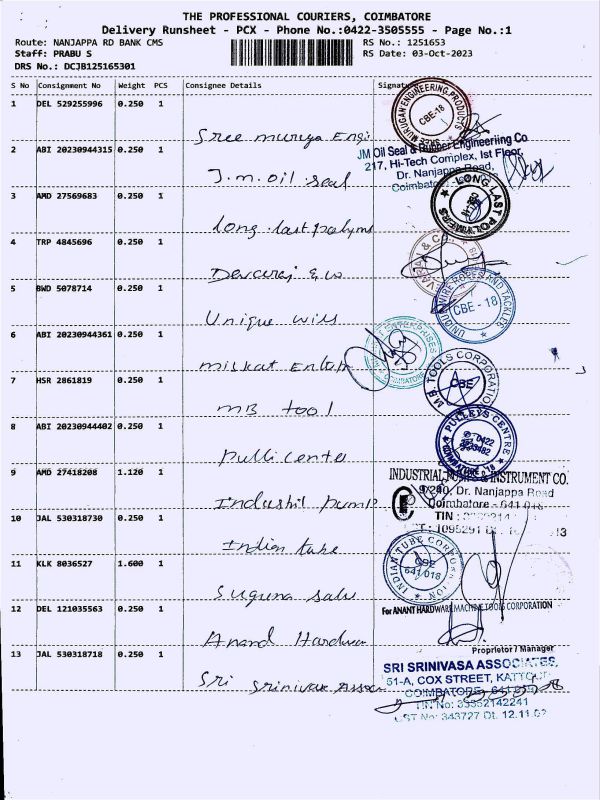 THE PROFESSIONAL COURIERS, COIMBATORE
Delivery Runsheet - PCX - Phone No.:0422-3505555 - Page No.:1
Route: NANJAPPA RD BANK CMS
RS No.: 1251653
Staff: PRABU S
RS Date: 03-Oct-2023
DRS No.: DCJB125165301
S No Consignment No Weight PCS Consignee Details Signature
1 DEL 529255996 0.250 1
MURUGAN ENGINEERING PRODUCTS
CBE-18
Sree muruga Engi
2 ABI 20230944315 0.250 1
JM Oil Seal & Rubber Engineeriing Co
217, Hi-Tech Complex, Ist Floor,
Dr. Nanjappa Road,
Coimbatore
J.m.oil seal
3 AMD 27569683 0.250 1
LONG LAST POLYMERS
long last polyms
4 TRP 4845696 0.250 1
Devaraj & co
5 BWD 5078714 0.250 1
UNIQUE WIRE ROPES AND TACKLES
CBE - 18
Unique wires
6 ABI 20230944361 0.250 1
ENTERPRISES
COIMBATORE
miskat Enterp
7 HSR 2861819 0.250 1
M.B. TOOLS CORPORATION
CBE
MB tool
8 ABI 20230944402 0.250 1
PULLEYS CENTRE
0422
COIMBATORE - 18
Pulli center
9 AMD 27418208 1.120 1
INDUSTRIAL PUMPS & INSTRUMENT CO.
9/240, Dr. Nanjappa Road
Coimbatore - 641 018
TIN :
Industril pump
10 JAL 530318730 0.250 1
INDIAN TUBE CORPORATION
CBE
641 018
Indian tube
11 KLK 8036527 1.600 1
Suguna sales
12 DEL 121035563 0.250 1
For ANANT HARDWARE MACHINE TOOLS CORPORATION
Anand Hardwar
Proprietor / Manager
13 JAL 530318718 0.250 1
SRI SRINIVASA ASSOCIATES,
51-A, COX STREET, KATTOOR
COIMBATORE
TIN No: 33552142241
CST No: 343727 Dt. 12.11.02
Sri Srinivas Assoc